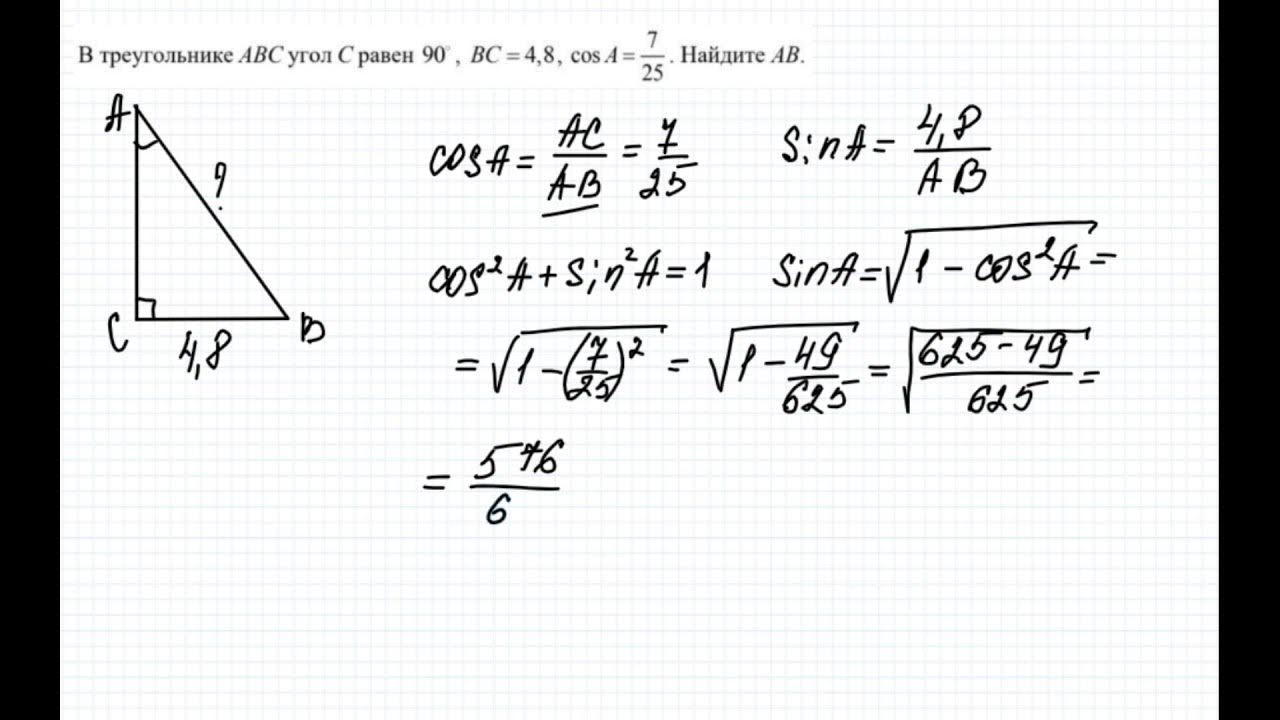 В треугольнике ABC угол C равен 90°, BC = 4,8, cos A = 7/25. Найдите AB.
A
?
C
B
4,8
cosA = AC/AB = 7/25
SinA = 4,8/AB
cos²A + Sin²A = 1
SinA = √(1 - cos²A) =
= √(1 - (7/25)²) = √(1 - 49/625) = √((625 - 49)/625) =
= 576/6